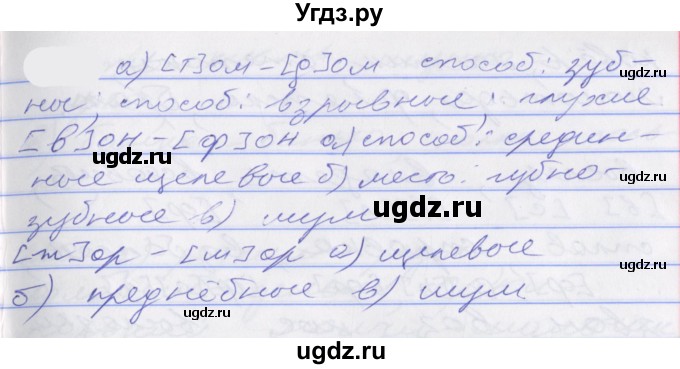 Угдз.ру
а) [т]ом – [д]ом способ: зуб-
ные; способ: взрывные; глухие
[в]он – [ф]он а) способ: средин-
ные щелевые б) место: губно-
зубные в) шум
[ж]ар – [ш]ар а) щелевые
б) преднёбные в) шум
ugdz.ru
ugdz.ru
ugdz.ru
ugdz.ru
ugdz.ru
ugdz.ru
ugdz.ru
ugdz.ru